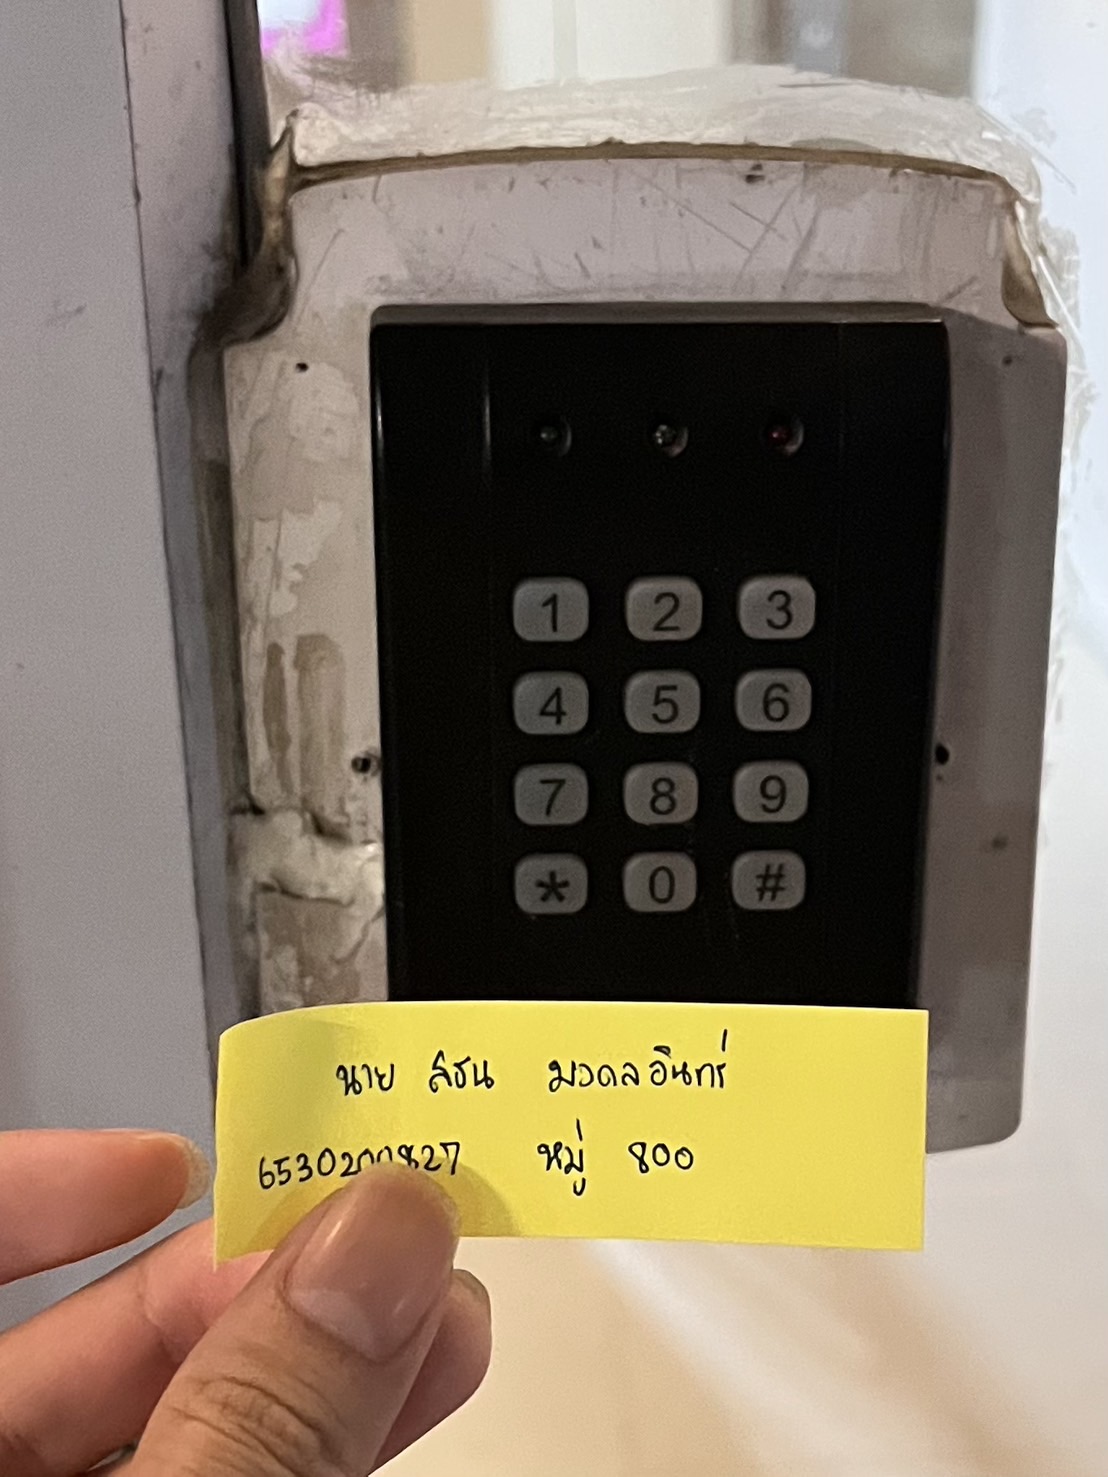 1 2 3
4 5 6
7 8 9
* 0 #
นาย สิธน มงคลอินทร์
6530200827 หมู่ 800